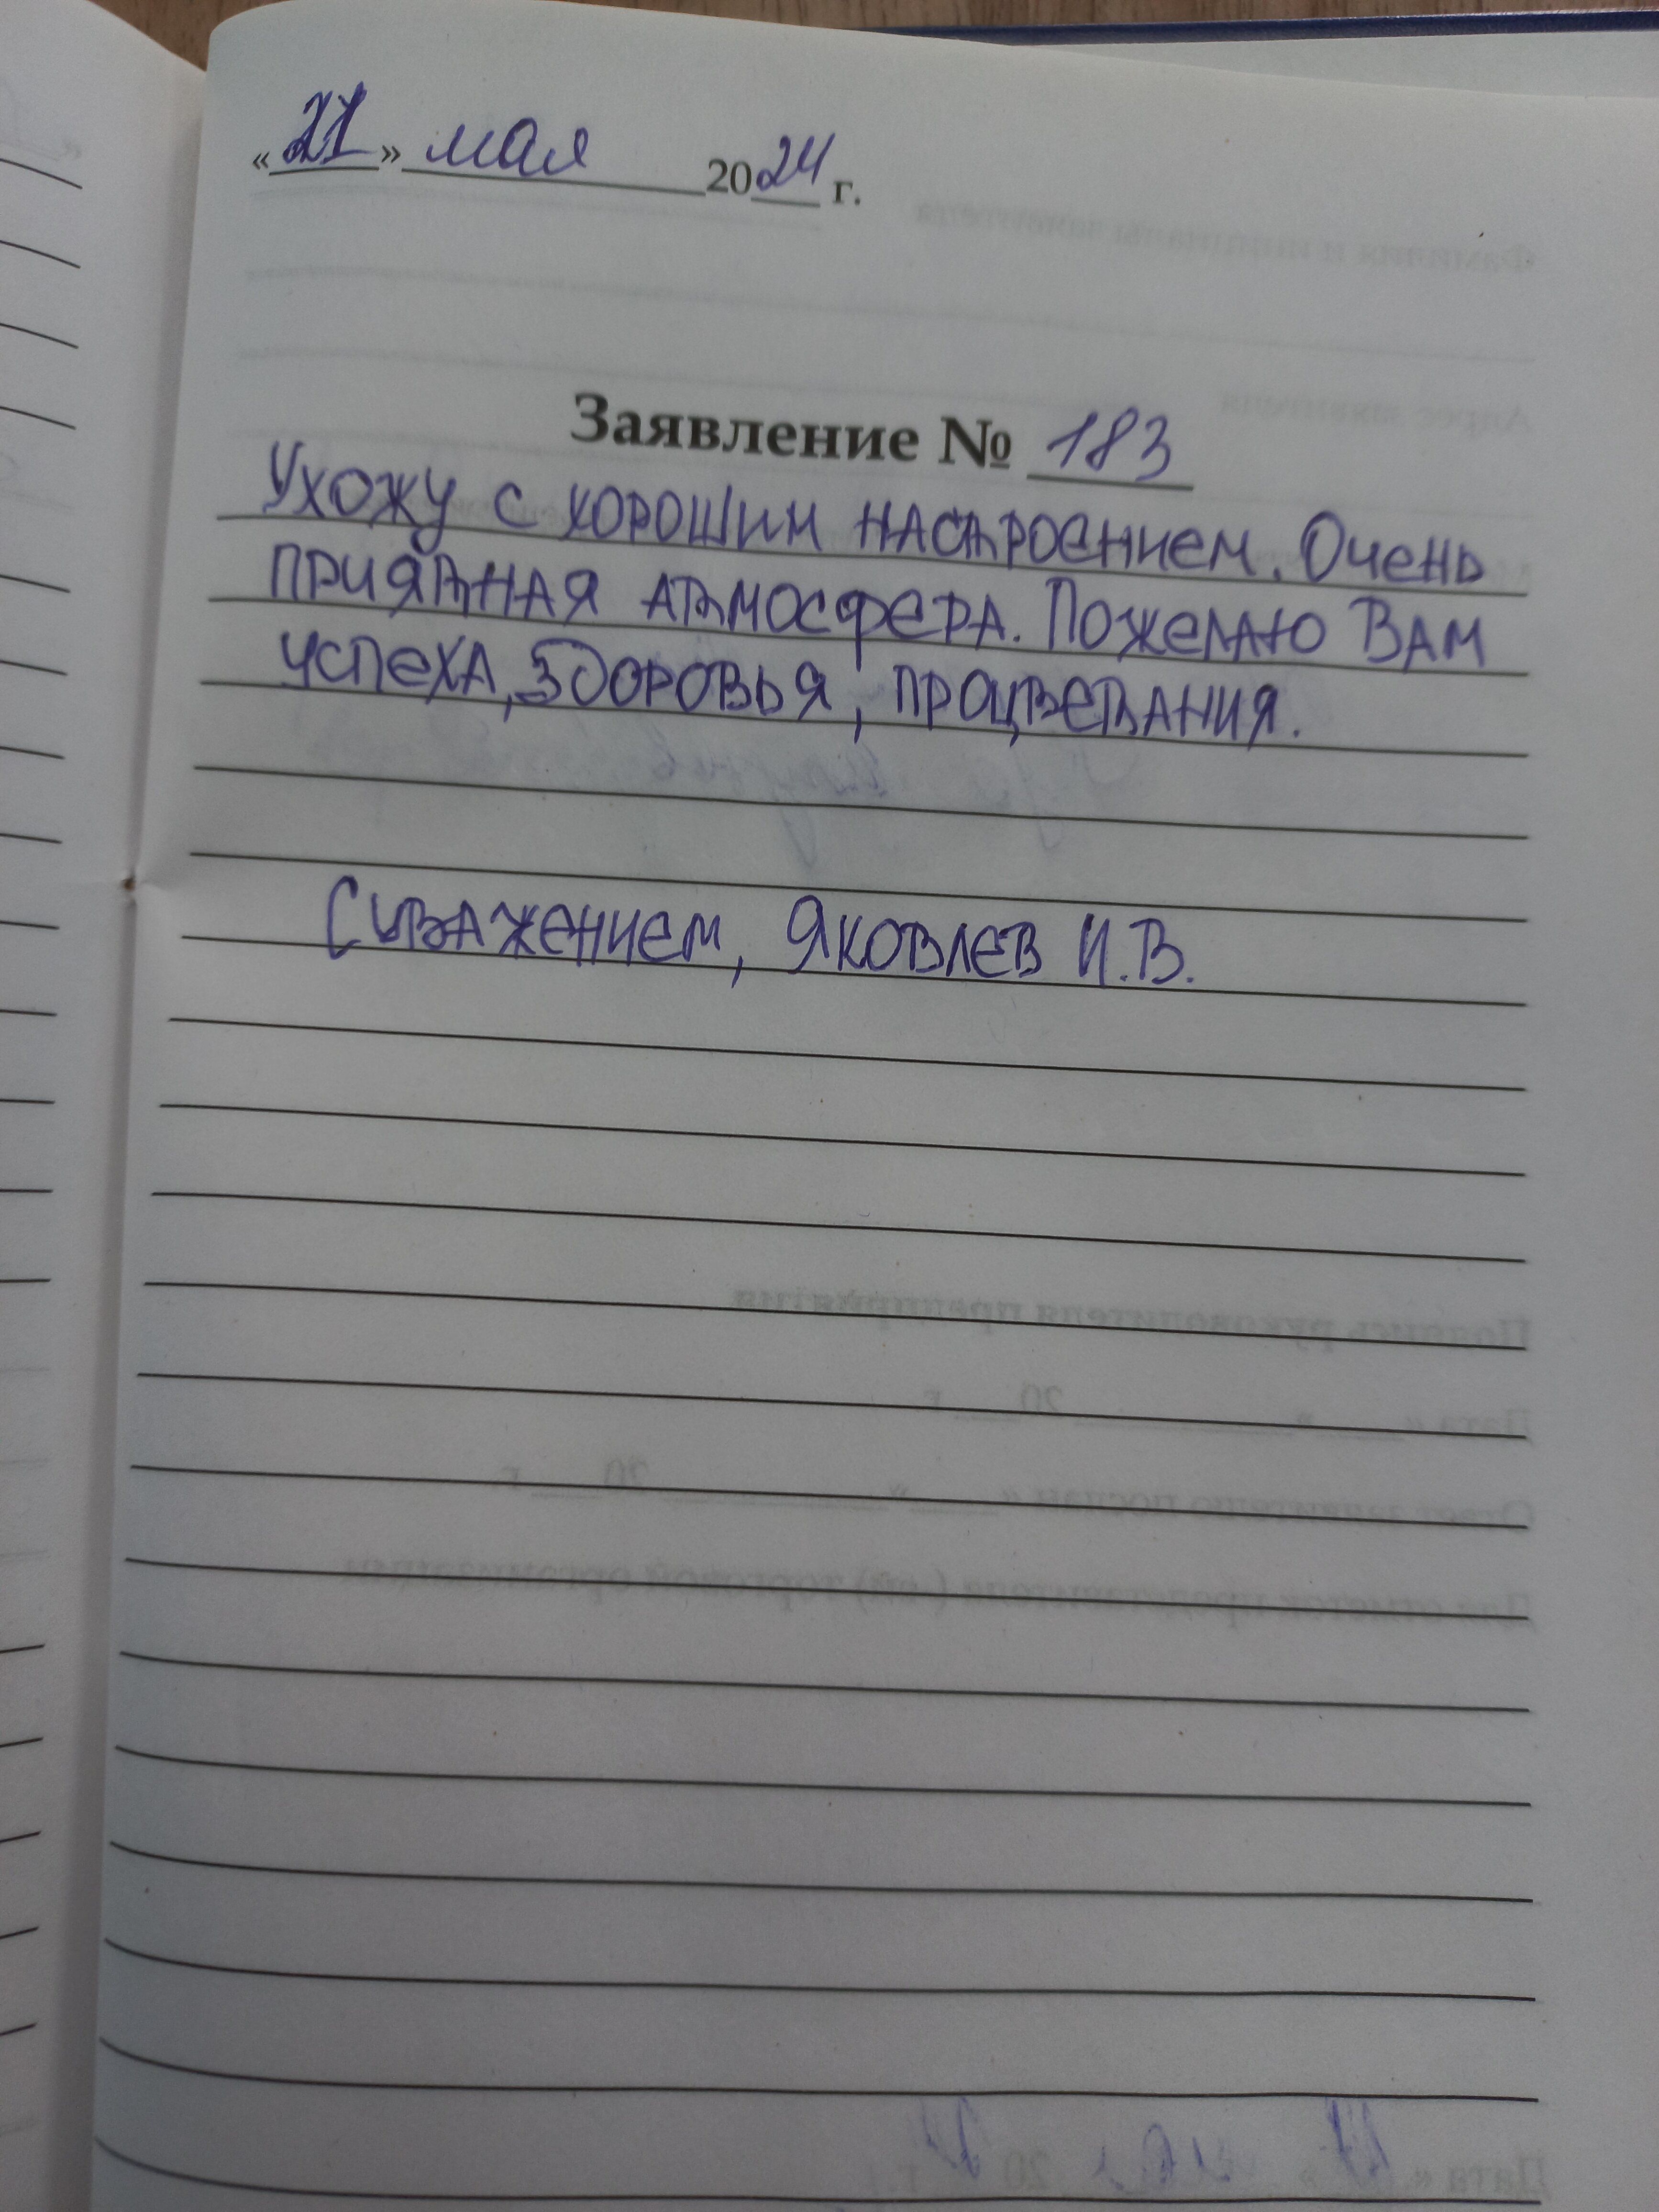 «21» мая 2024 г.
Заявление № 183
Ухожу с хорошим настроением. Очень
приятная атмосфера. Пожелаю Вам
успеха, здоровья, процветания.
С уважением, Яковлев И.В.